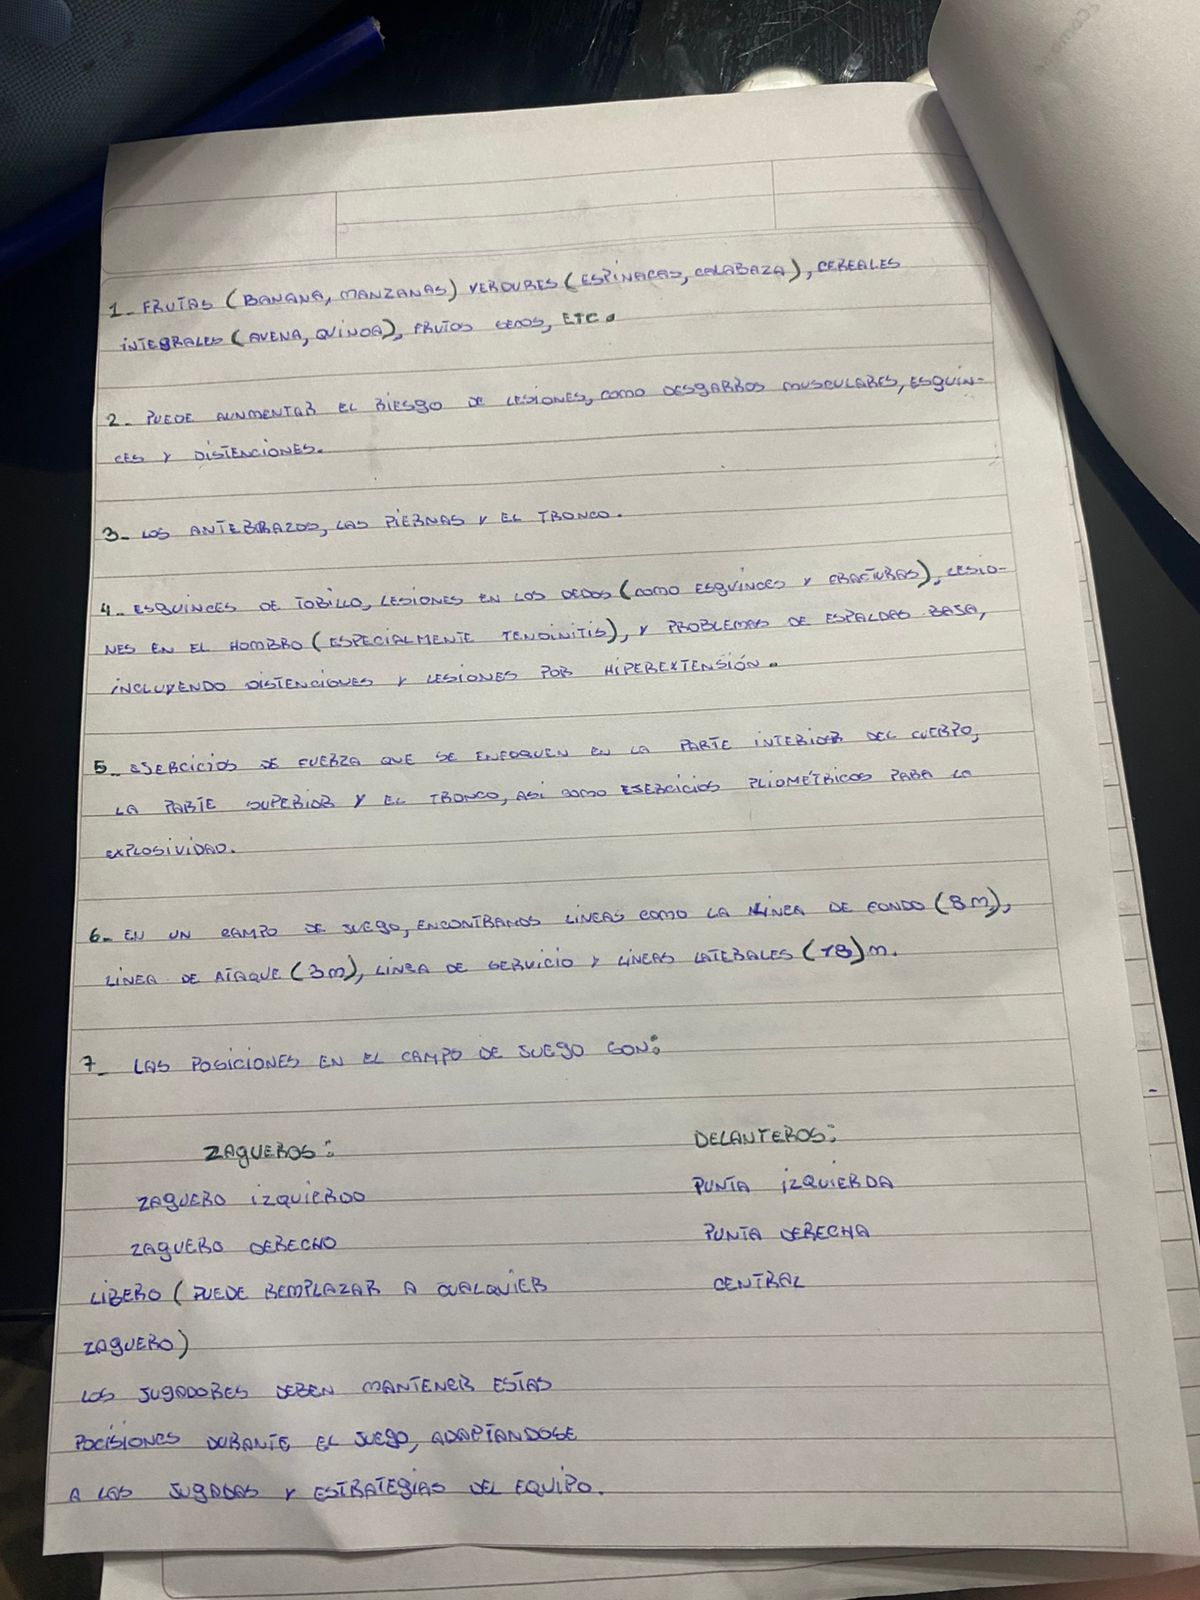 1- FRUTAS (BANANA, MANZANAS) VERDURES (ESPINACAS, CALABAZA), CEREALES
INTEGRALES (AVENA, QUINOA), FRUTOS SECOS, ETC.
2- PUEDE AUNMENTAR EL RIESGO DE LESIONES, COMO DESGARROS MUSCULARES, ESGUIN-
CES Y DISTENCIONES.
3- LOS ANTEBRAZOS, LAS PIERNAS Y EL TRONCO.
4- ESGUINCES DE TOBILLO, LESIONES EN LOS DEDOS (COMO ESGUINCES Y FRACTURAS), LESIO-
NES EN EL HOMBRO (ESPECIALMENTE TENDINITIS), Y PROBLEMAS DE ESPALDAS BAJA,
INCLUYENDO DISTENCIONES Y LESIONES POR HIPEREXTENSIÓN.
5- EJERCICIOS DE FUERZA QUE SE ENFOQUEN EN LA PARTE INTERIOR DEL CUERPO,
LA PARTE SUPERIOR Y EL TRONCO, ASI COMO EJERCICIOS PLIOMÉTRICOS PARA LA
EXPLOSIVIDAD.
6- EN UN CAMPO DE JUEGO, ENCONTRAMOS LÍNEAS COMO LA LÍNEA DE FONDO (8M),
LÍNEA DE ATAQUE (3M), LÍNEA DE SERVICIO Y LÍNEAS LATERALES (18)M.
7- LAS POSICIONES EN EL CAMPO DE JUEGO SON:
ZAGUEROS: DELANTEROS:
ZAGUERO IZQUIERDO PUNTA IZQUIERDA
ZAGUERO DERECHO PUNTA DERECHA
LIBERO (PUEDE REMPLAZAR A CUALQUIER CENTRAL
ZAGUERO)
LOS JUGADORES DEBEN MANTENER ESTAS
POCISIONES DURANTE EL JUEGO, ADAPTANDOSE
A LAS JUGADAS Y ESTRATEGIAS DEL EQUIPO.